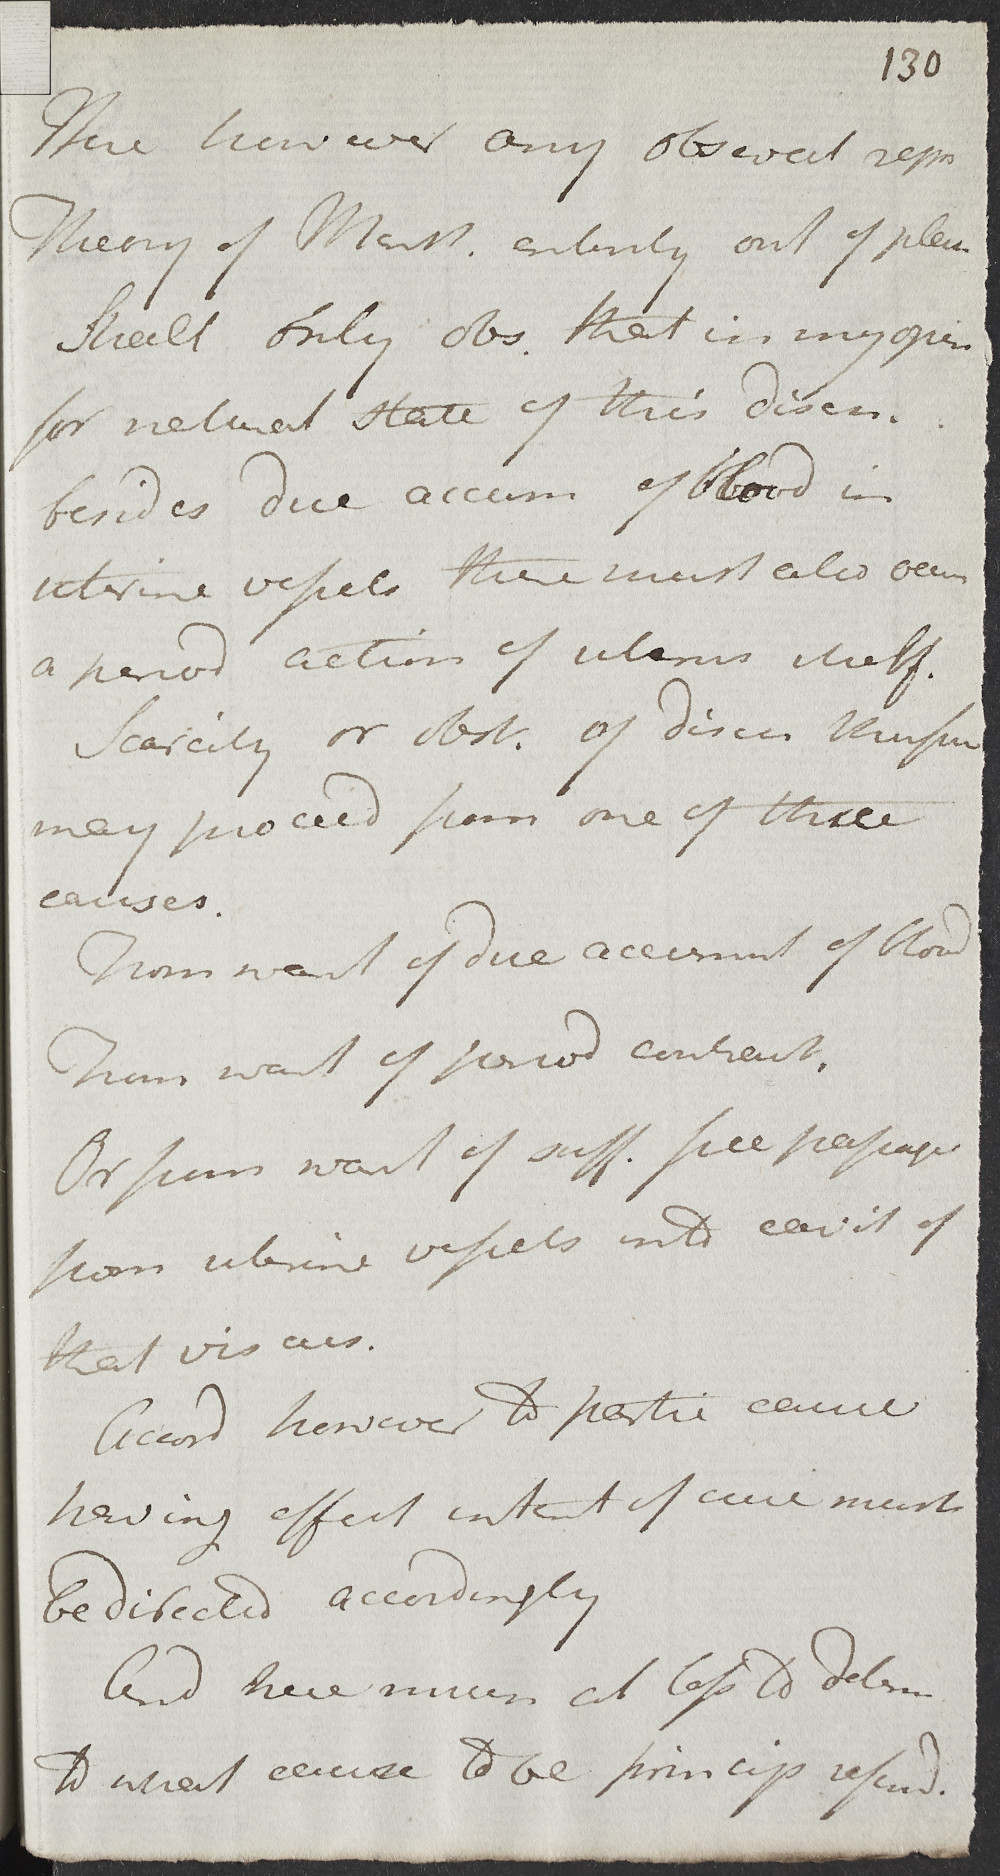 130
Here however any observat resp
Theory of Menst. entirely out of place
Shall only obs. that in my opin
for natural state of this discn.
besides due accum of blood in
uterine vessels there must also occur
a period action of uterus itself.
Scarcity or obst. of discn therefore
may proceed from one of three
causes.
From want of due accumt of blood
From want of period contract.
Or from want of suff. free passage
from uterine vessels into cavit of
that viscus.
Accord however to partic cause
having effect intent of cure must
be directed accordingly
And here much at loss to determ
to what cause to be princip